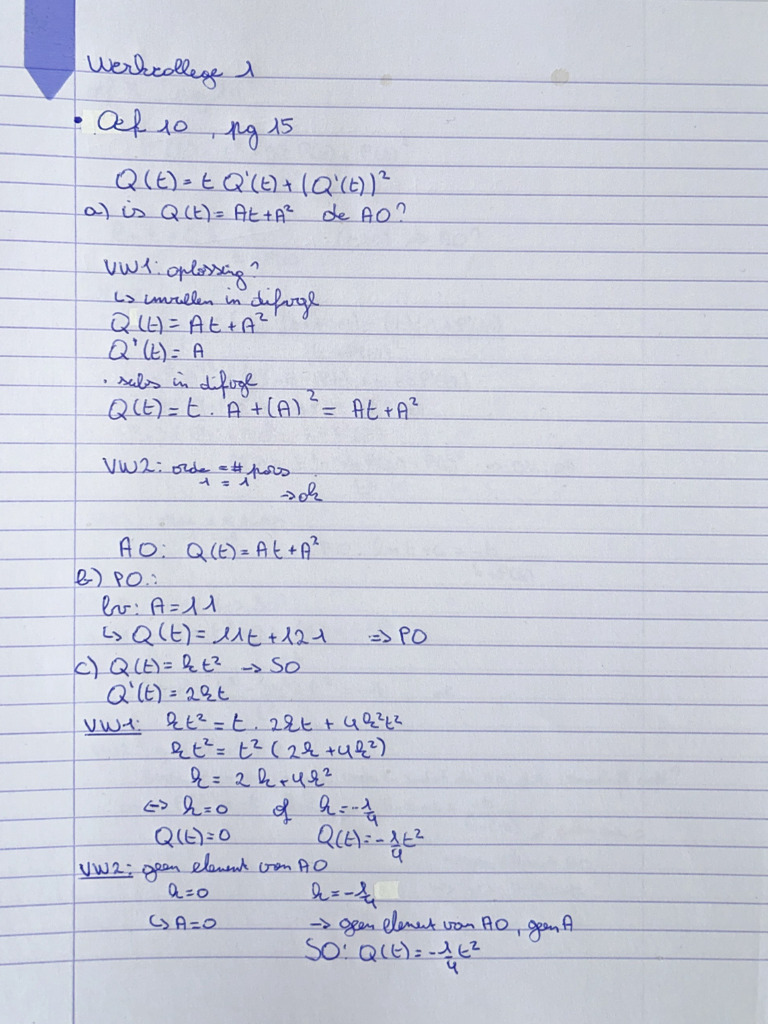 Werkcollege 1
• Oef 10, pg 15
Q(t) = t Q'(t) + (Q'(t))²
a) is Q(t) = At + A² de AO?
VW1: oplossing?
↳ invullen in difvgl
Q(t) = At + A²
Q'(t) = A
• subs in difvgl
Q(t) = t . A + (A)² = At + A²
VW2: orde = # para
1 = 1
→ ok
AO: Q(t) = At + A²
b) PO.:
bv: A = 11
↳ Q(t) = 11t + 121 => PO
c) Q(t) = kt² → SO
Q'(t) = 2kt
VW1: kt² = t . 2kt + 4k²t²
kt² = t² (2k + 4k²)
k = 2k + 4k²
<=> k = 0 of k = -1/4
Q(t) = 0 Q(t) = -1/4 t²
VW2: geen element van AO
k = 0 k = -1/4
↳ A = 0 → geen element van AO, geen A
SO: Q(t) = -1/4 t²